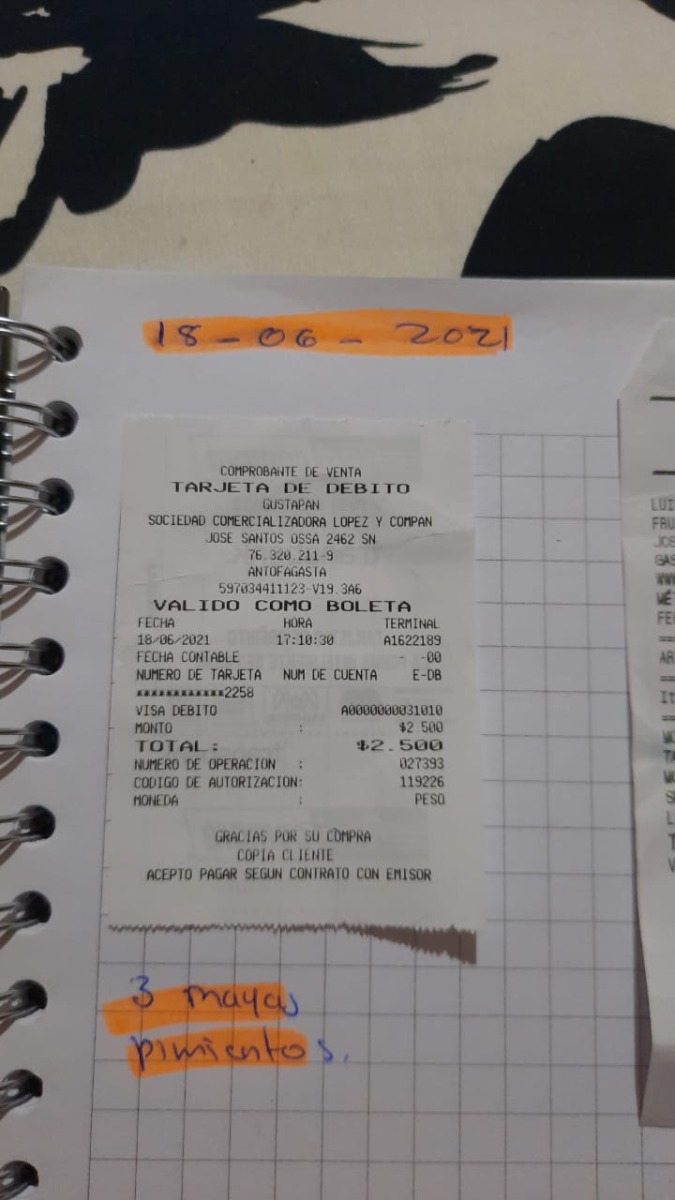 18-06-2021
COMPROBANTE DE VENTA
TARJETA DE DEBITO
GUSTAPAN
SOCIEDAD COMERCIALIZADORA LOPEZ Y COMPAN
JOSE SANTOS OSSA 2462 SN
76.320.211-9
ANTOFAGASTA
597034411123-V19.3A6
VALIDO COMO BOLETA
FECHA HORA TERMINAL
18/06/2021 17:10:30 A1622189
FECHA CONTABLE - -00
NUMERO DE TARJETA NUM DE CUENTA E-DB
************2258
VISA DEBITO A0000000031010
MONTO : $2.500
TOTAL: $2.500
NUMERO DE OPERACION : 027393
CODIGO DE AUTORIZACION: 119226
MONEDA : PESO
GRACIAS POR SU COMPRA
COPIA CLIENTE
ACEPTO PAGAR SEGUN CONTRATO CON EMISOR
3 mayas
pimientos.
LUI
FRU
JOS
GAS
WWW
MÉT
FEC
==
AR
==
It
==